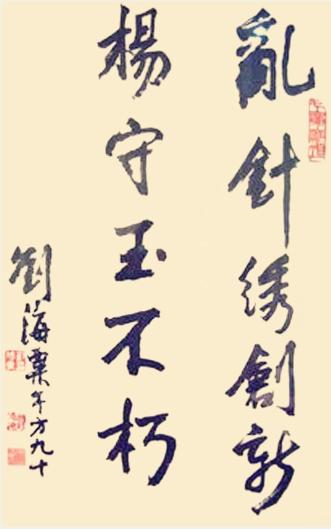 亂針綉創新
楊守玉不朽
劉海粟年方九十